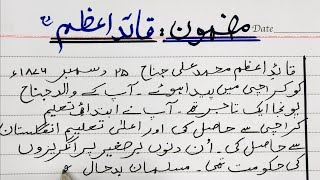 مضمون : قائد اعظم رح
Date
قائد اعظم محمد علی جناح ۲۵ دسمبر ۱۸۷۶ء
کو کراچی میں پیدا ہوئے۔ آپ کے والد جناح
پونجا ایک تاجر تھے۔ آپ نے ابتدائی تعلیم
کراچی سے حاصل کی اور اعلیٰ تعلیم انگلستان
سے حاصل کی۔ اُن دنوں برصغیر پر انگریزوں
کی حکومت تھی۔ مسلمان بدحال